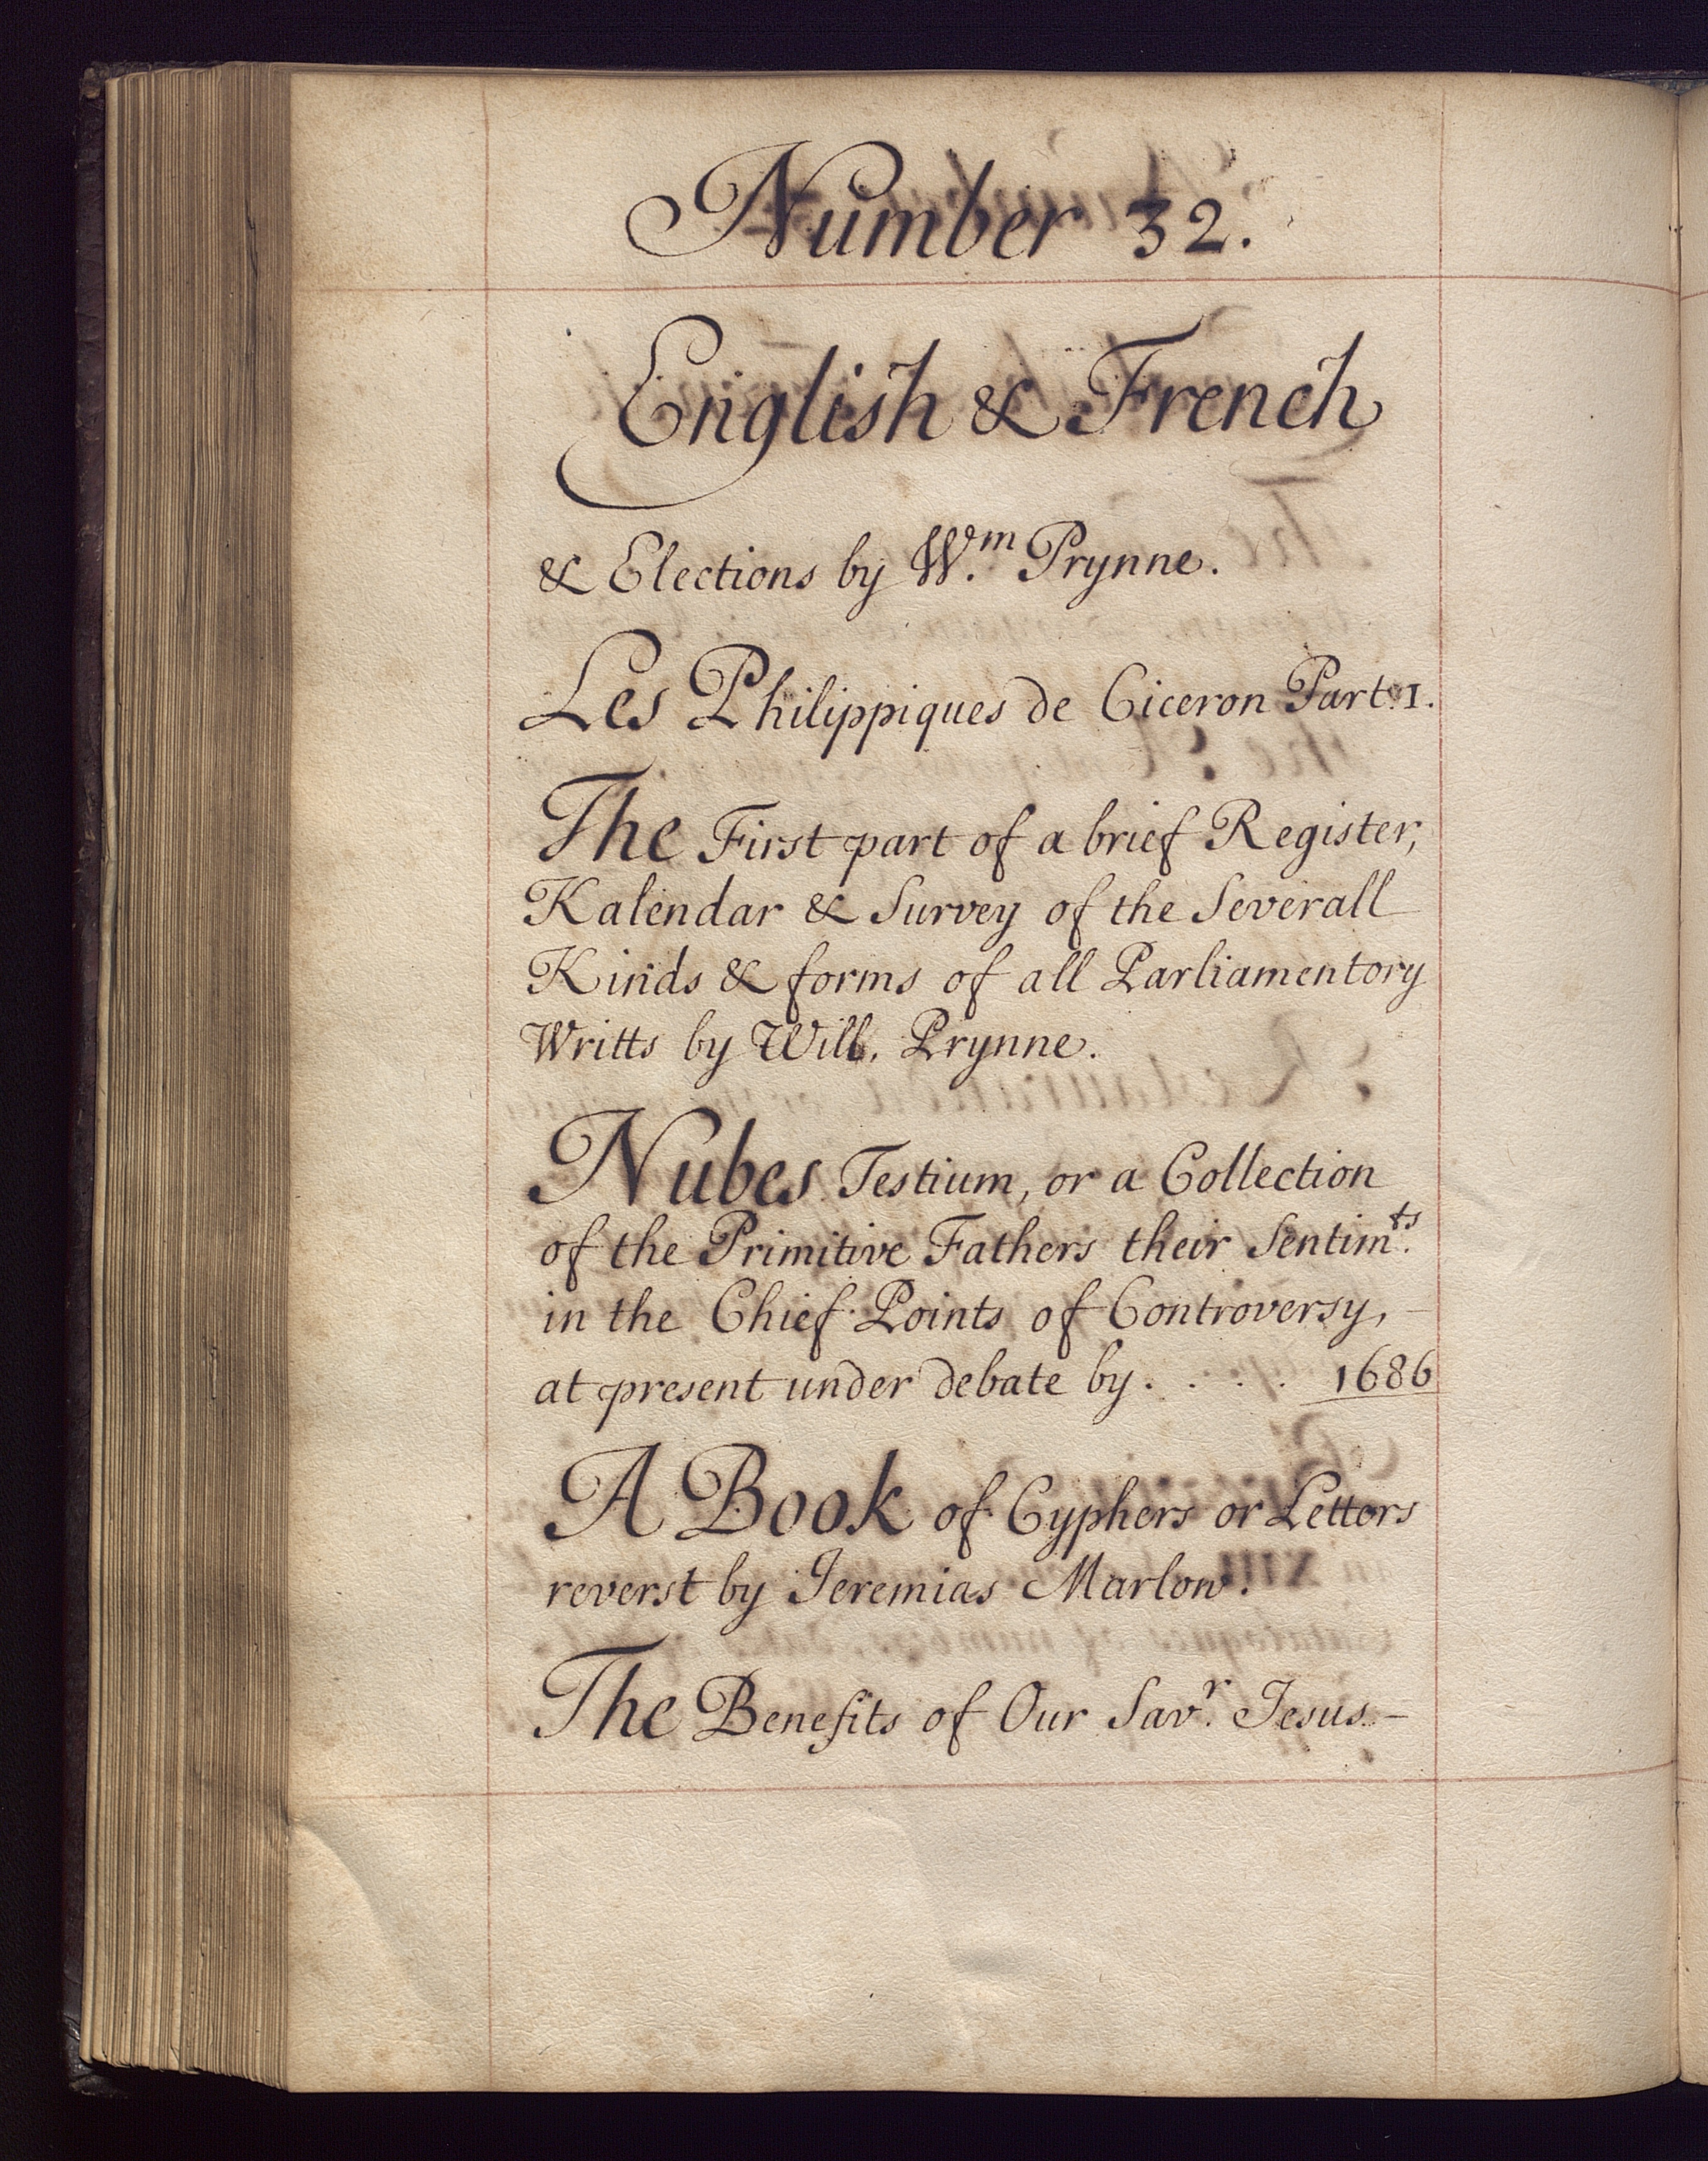 Number 32.
English & French
& Elections by W.m Prynne.
Les Philippiques de Ciceron Part. 1.
The First part of a brief Register,
Kalendar & Survey of the Severall
Kinds & forms of all Parliamentory
Writts by Will. Prynne.
Nubes Testium, or a Collection
of the Primitive Fathers their Sentim.ts
in the Chief Points of Controversy,
at present under debate by . . . . 1686
A Book of Cyphers or Letters
reverst by Jeremias Marlow.
The Benefits of Our Sav.r Jesus -